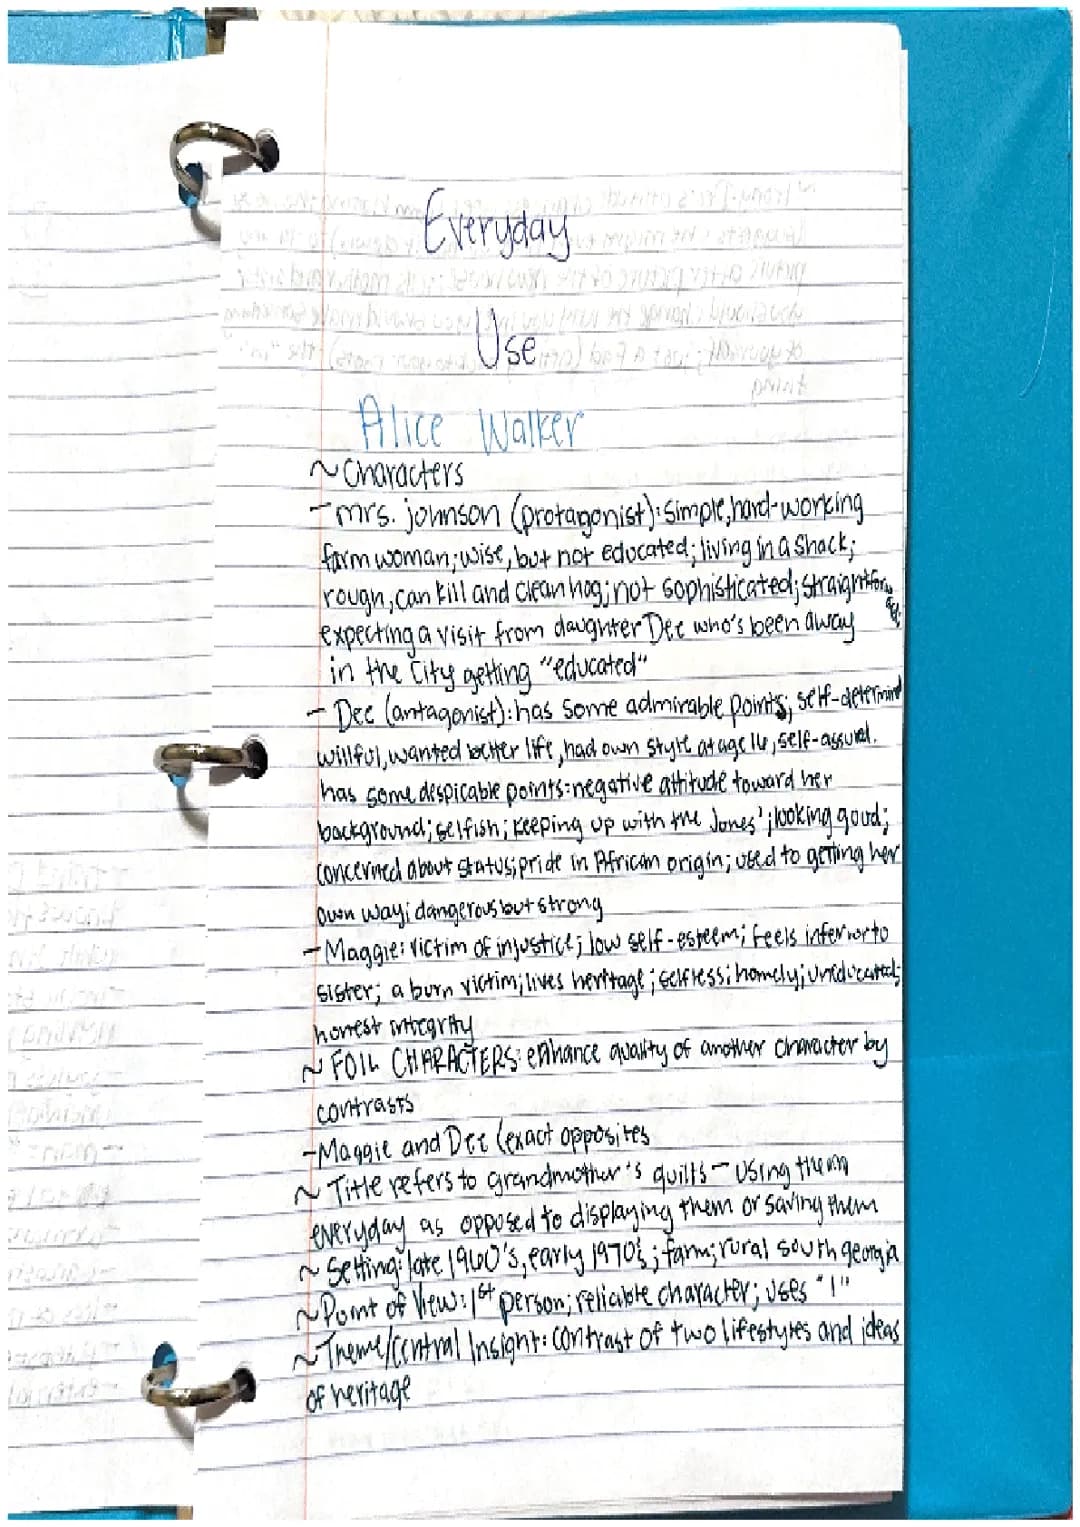 Everyday
Use
Alice Walker
~ Characters
- mrs. johnson (protagonist): simple, hard-working
farm woman; wise, but not educated; living in a shack;
rough, can kill and clean hog; not sophisticated; straightforward
expecting a visit from daughter Dee who's been away
in the City getting "educated"
- Dee (antagonist): has some admirable points; self-determined
willful, wanted better life, had own style at age 16, self-assured.
has some despicable points: negative attitude toward her
background; selfish; keeping up with the Jones'; looking good;
concerned about status; pride in African origin; used to getting her
own way; dangerous but strong
- Maggie: victim of injustice; low self-esteem; feels inferior to
sister; a burn victim; lives heritage; selfless; homely; uneducated;
honest integrity
~ FOIL CHARACTERS: enhance quality of another character by
contrasts
- Maggie and Dee (exact opposites
~ Title refers to grandmother's quilts - using them
everyday as opposed to displaying them or saving them
~ Setting: late 1960's, early 1970's; farm; rural south georgia
~ Point of View: 1st person; reliable character; uses "I"
~ Theme/Central Insight: contrast of two lifestyles and ideas
of heritage